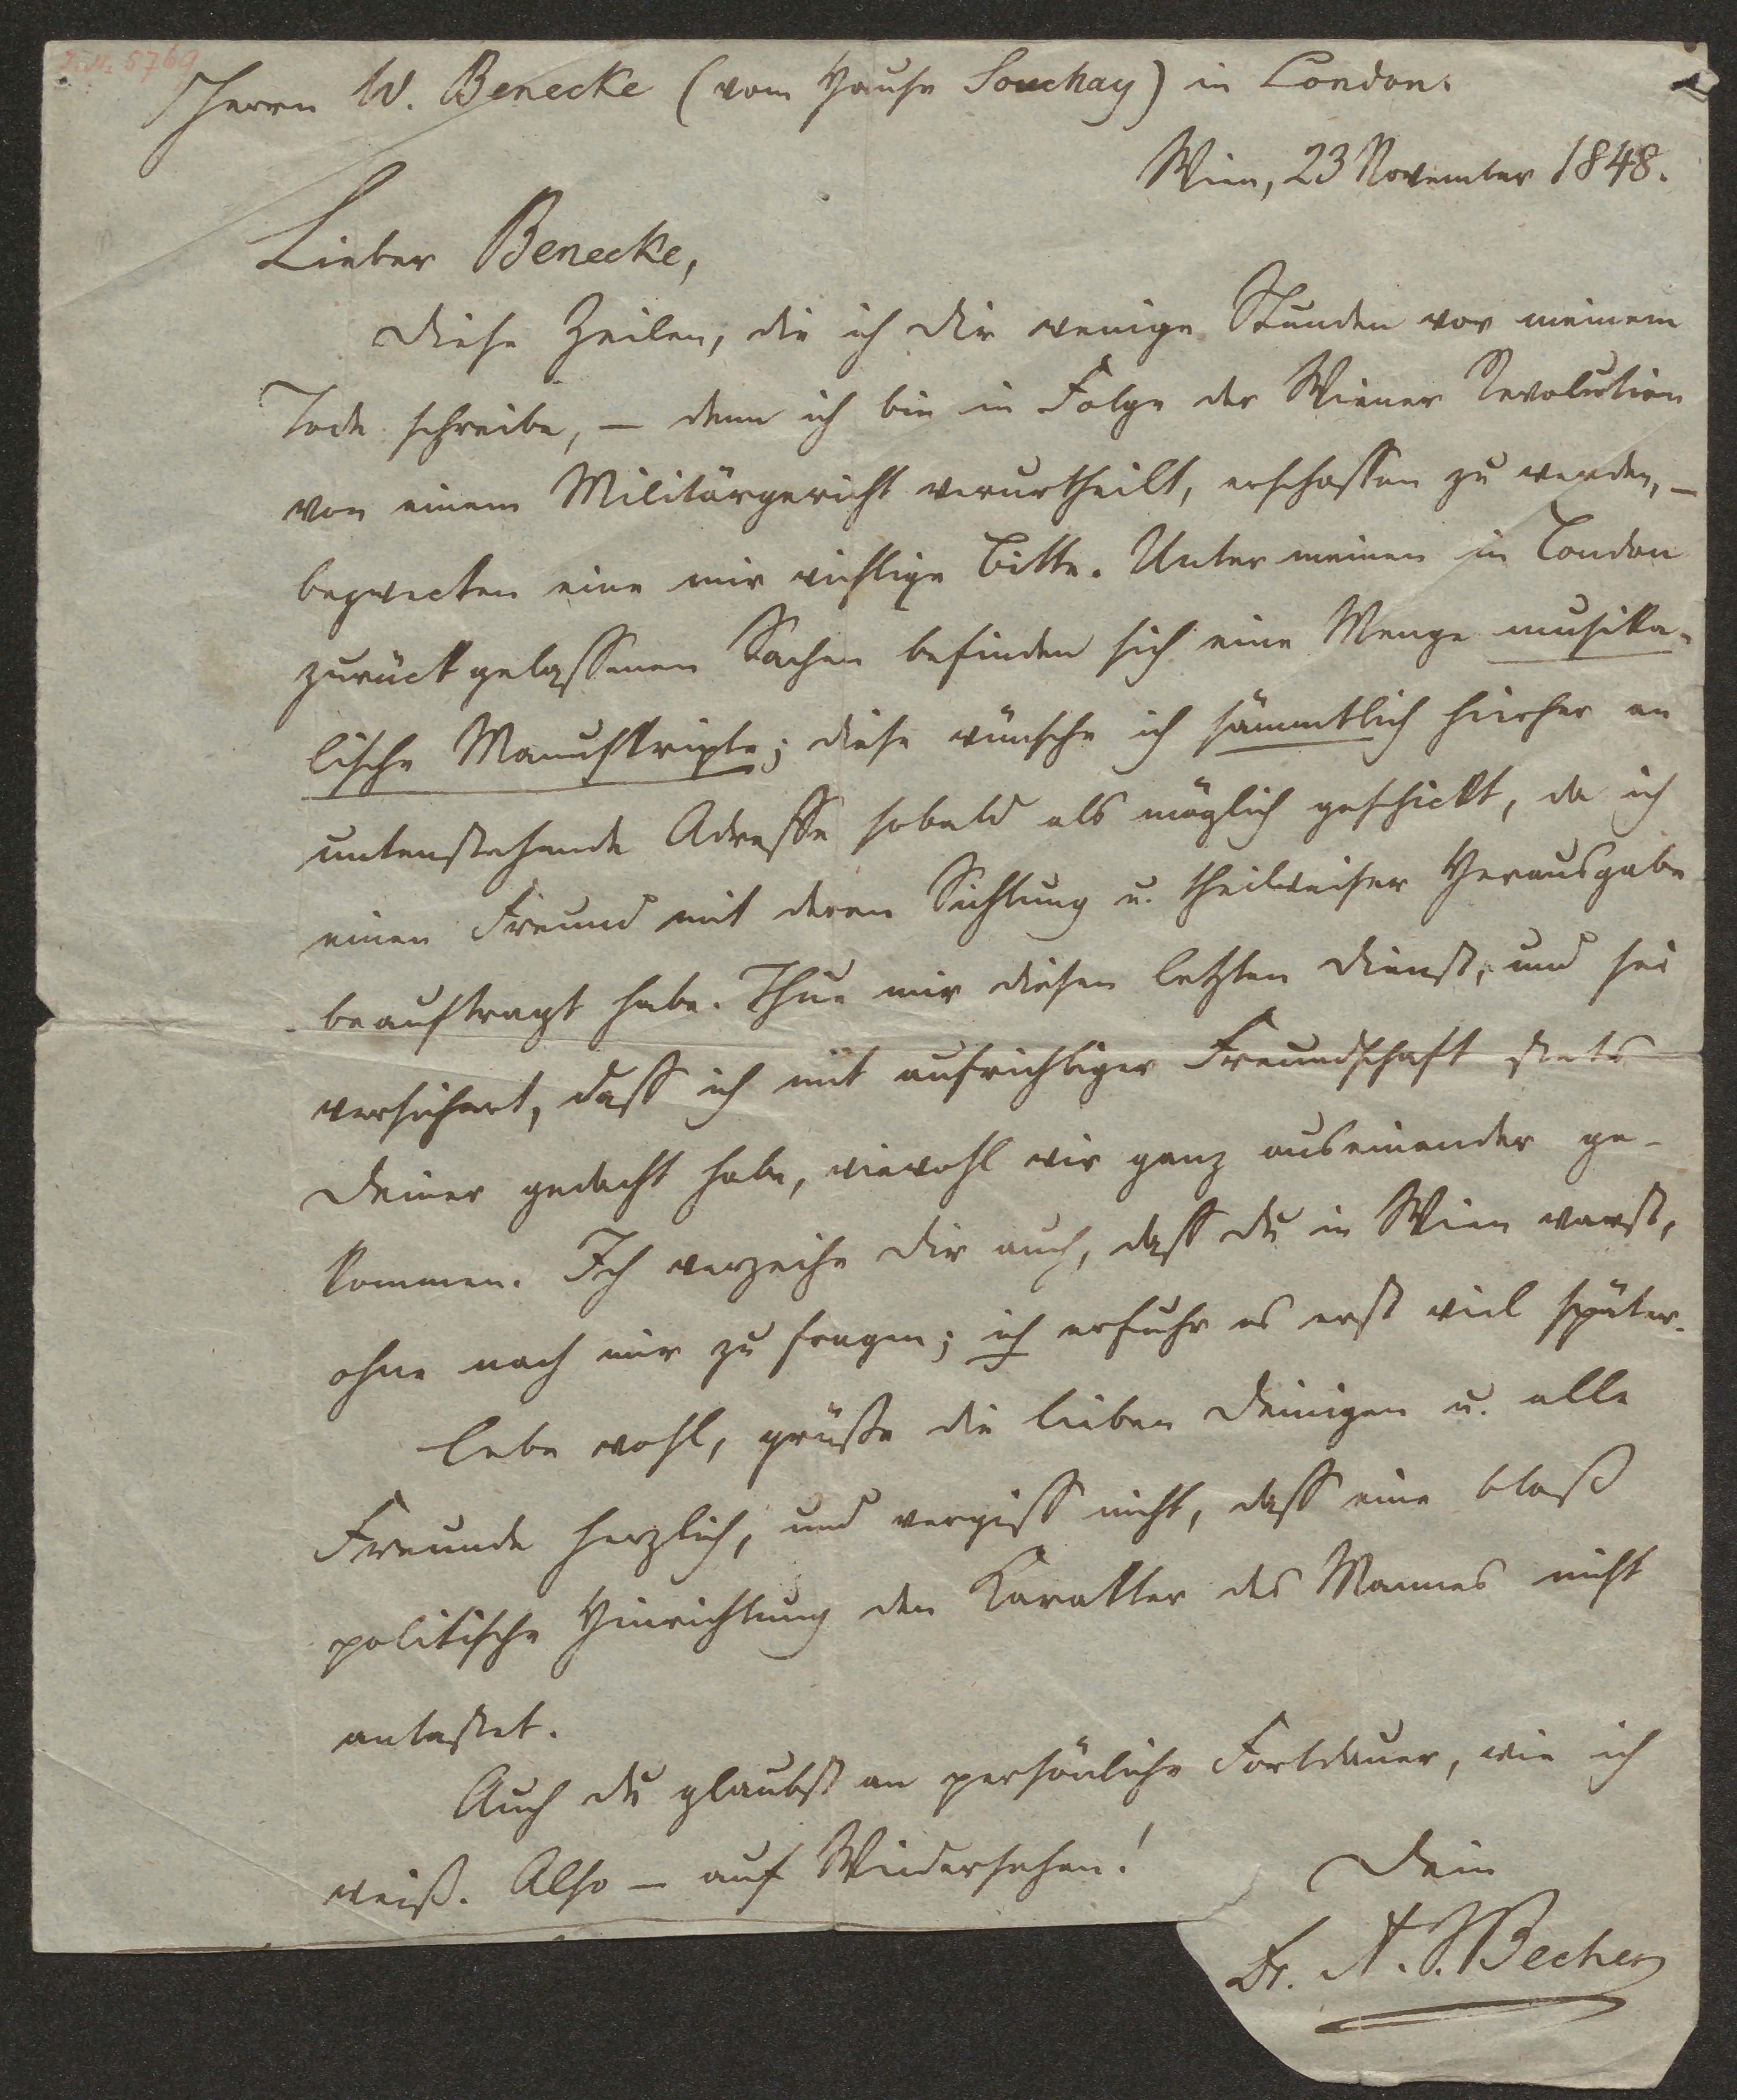 I. N. 5769
Herrn W. Benecke (vom Hause Souchay) in London.
Wien, 23 November 1848.
Lieber Benecke,
Diese Zeilen, die ich Dir wenige Stunden vor meinem
Tode schreibe, — denn ich bin in Folge der Wiener Revolution
von einem Militärgericht verurtheilt, erschossen zu werden, —
bezwecken eine mir wichtige Bitte. Unter meinen in London
zurückgelassenen Sachen befinden sich eine Menge musika-
lische Manuskripte; diese wünsche ich sämmtlich hierher an
untenstehende Adresse sobald als möglich geschickt, da ich
einen Freund mit deren Sichtung u. theilweiser Herausgabe
beauftragt habe. Thue mir diesen letzten Dienst, und sei
versichert, dass ich mit aufrichtiger Freundschaft stets
Deiner gedacht habe, wiewohl wir ganz auseinander ge-
kommen. Ich verzeihe Dir auch, dass Du in Wien warst,
ohne nach mir zu fragen; ich erfuhr es erst viel später.
Lebe wohl, grüße die lieben Deinigen u. alle
Freunde herzlich, und vergiss nicht, dass eine bloß
politische Hinrichtung den Karakter des Mannes nicht
antastet.
Auch Du glaubst an persönliche Fortdauer, wie ich
weiß. Also — auf Wiedersehen!
Dein
Dr. A. J. Becher